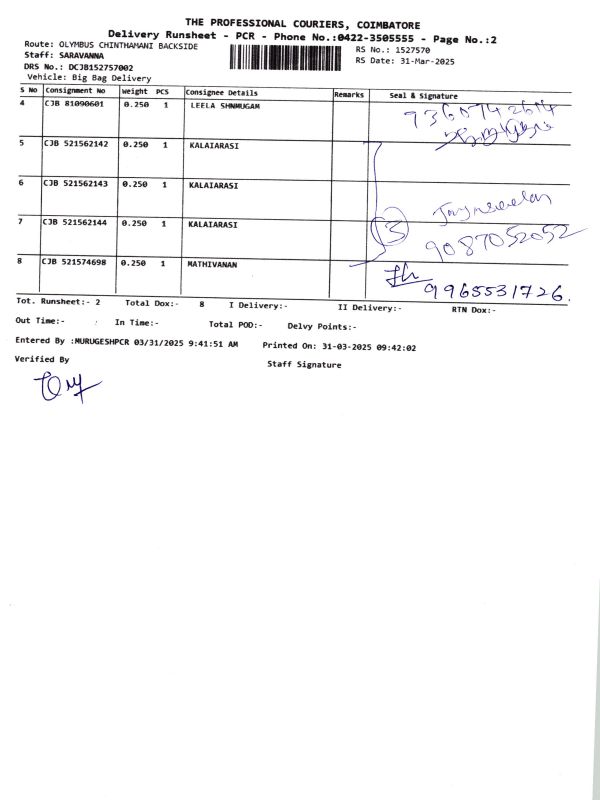 THE PROFESSIONAL COURIERS, COIMBATORE
Delivery Runsheet - PCR - Phone No.:0422-3505555 - Page No.:2
Route: OLYMBUS CHINTHAMANI BACKSIDE RS No.: 1527570
Staff: SARAVANNA RS Date: 31-Mar-2025
DRS No.: DCJB152757002
Vehicle: Big Bag Delivery
S No Consignment No Weight PCS Consignee Details Remarks Seal & Signature
4 CJB 81090601 0.250 1 LEELA SHNMUGAM 7360742614
5 CJB 521562142 0.250 1 KALAIARASI
6 CJB 521562143 0.250 1 KALAIARASI
7 CJB 521562144 0.250 1 KALAIARASI 3 9087052052
8 CJB 521574698 0.250 1 MATHIVANAN 9965531726.
Tot. Runsheet:- 2 Total Dox:- 8 I Delivery:- II Delivery:- RTN Dox:-
Out Time:- In Time:- Total POD:- Delvy Points:-
Entered By :MURUGESHPCR 03/31/2025 9:41:51 AM Printed On: 31-03-2025 09:42:02
Verified By Staff Signature